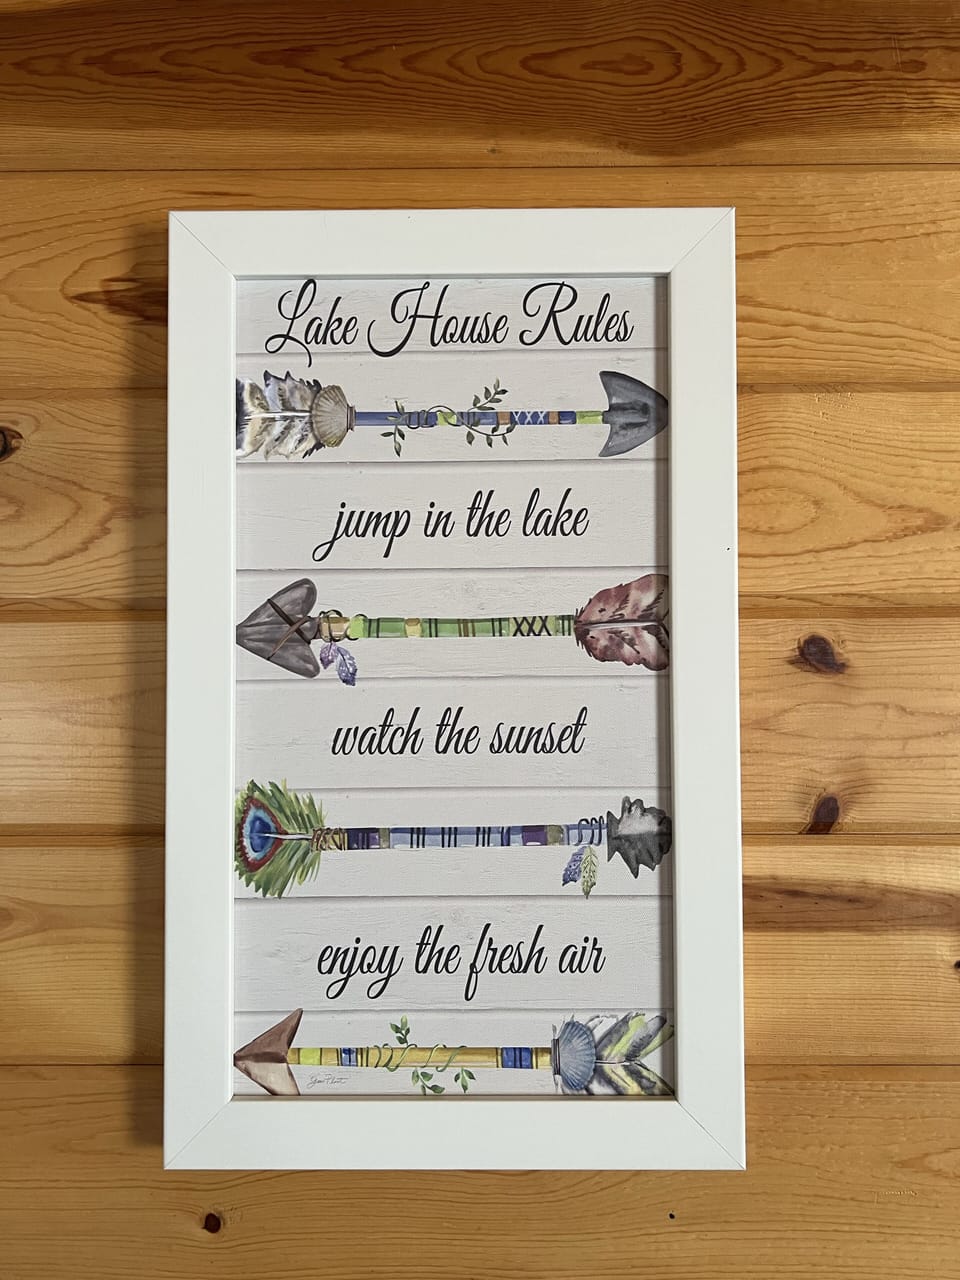 Lake House Rules
jump in the lake
watch the sunset
enjoy the fresh air